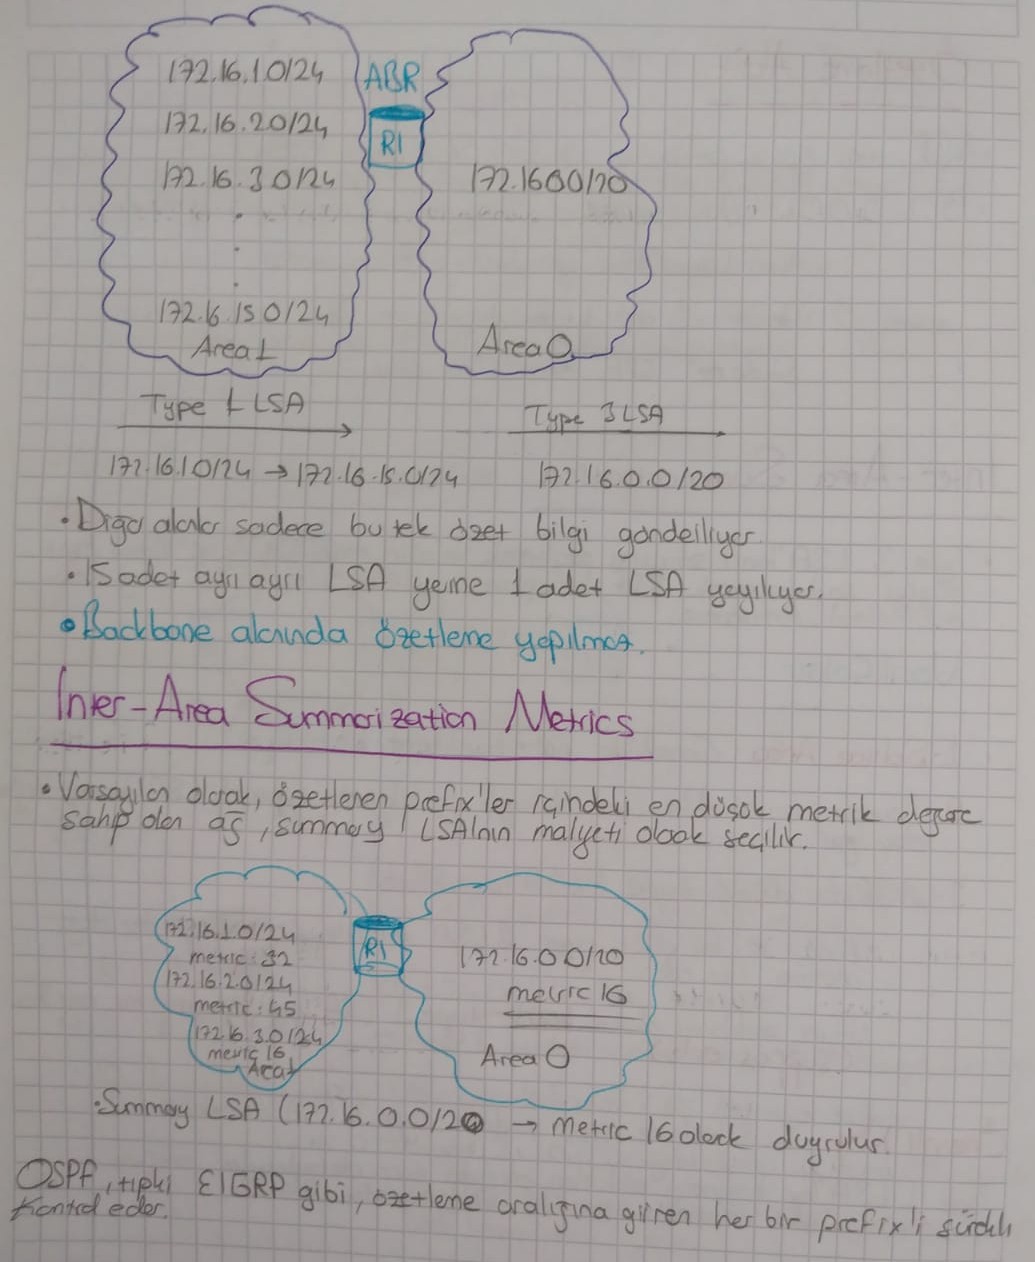 172.16.1.0/24
172.16.2.0/24
172.16.3.0/24
.
.
.
172.16.15.0/24
Area 1
ABR
R1
172.16.0.0/20
Area 0
Type 1 LSA
172.16.1.0/24 → 172.16.15.0/24
Type 3 LSA
172.16.0.0/20
• Diğer alanlar sadece bu tek özet bilgi gönderiliyor
• 15 adet ayrı ayrı LSA yerine 1 adet LSA yayılıyor.
• Backbone alanında özetleme yapılmaz.
Inter-Area Summarization Metrics
• Varsayılan olarak, özetlenen prefix'ler içindeki en düşük metrik değere
sahip olan ağ, summary LSA'nın maliyeti olarak seçilir.
172.16.1.0/24
metric: 32
172.16.2.0/24
metric: 45
172.16.3.0/24
metric 16
Area 1
R1
172.16.0.0/20
metric 16
Area 0
• Summary LSA (172.16.0.0/20 → metric 16 olarak duyrulur.
OSPF, tıpkı EIGRP gibi, özetleme aralığına giren her bir prefix'i sürekli
kontrol eder.